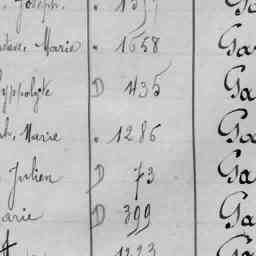 Joseph.
Marie " 1658 Ga
hyppolyte D 435 Ga
Marie " 1286 Ga
Julien D 73 Ga
Marie D 399 Ga
1223 Ga